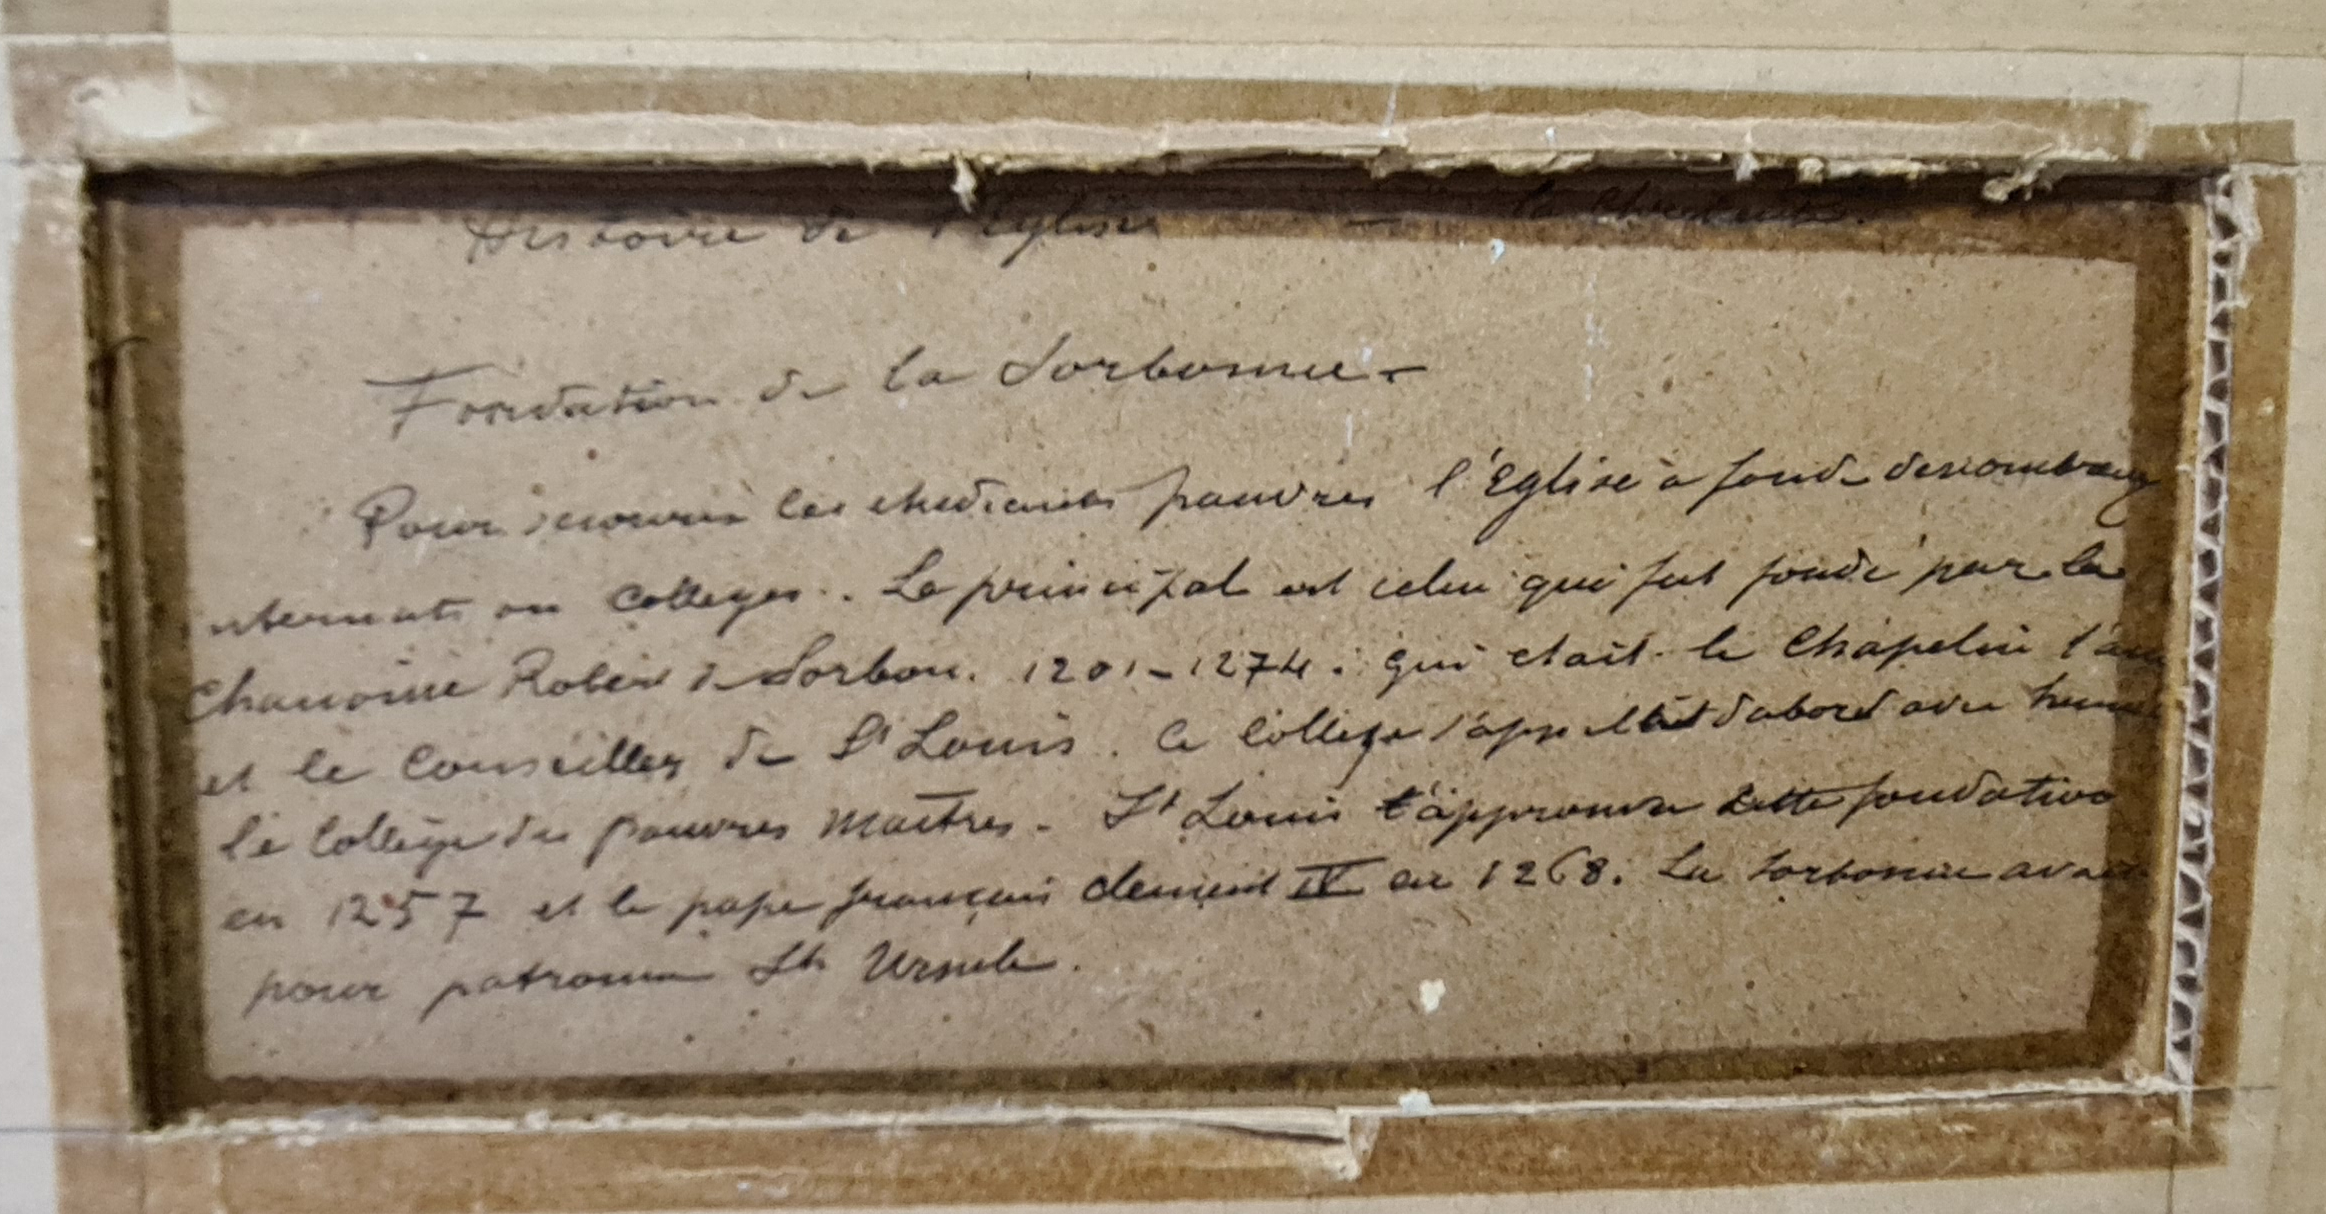 Histoire de l'Eglise —
Fondation de la Sorbonne -
Pour secourir les etudiants pauvres l'Eglise a fondé de nombreux
nternats ou Colleges. Le principal est celui qui fut fondé par le
Chanoine Robert de Sorbon. 1201-1274. qui etait le Chapelin l'am
et le Conseiller de St Louis. Ce College s'appellait d'abord avec humi
le College des pauvres Maitres. St Louis approuva cette fondation
en 1257 et le pape français Clement IV en 1268. La Sorbonne avait
pour patronne Ste Ursule.